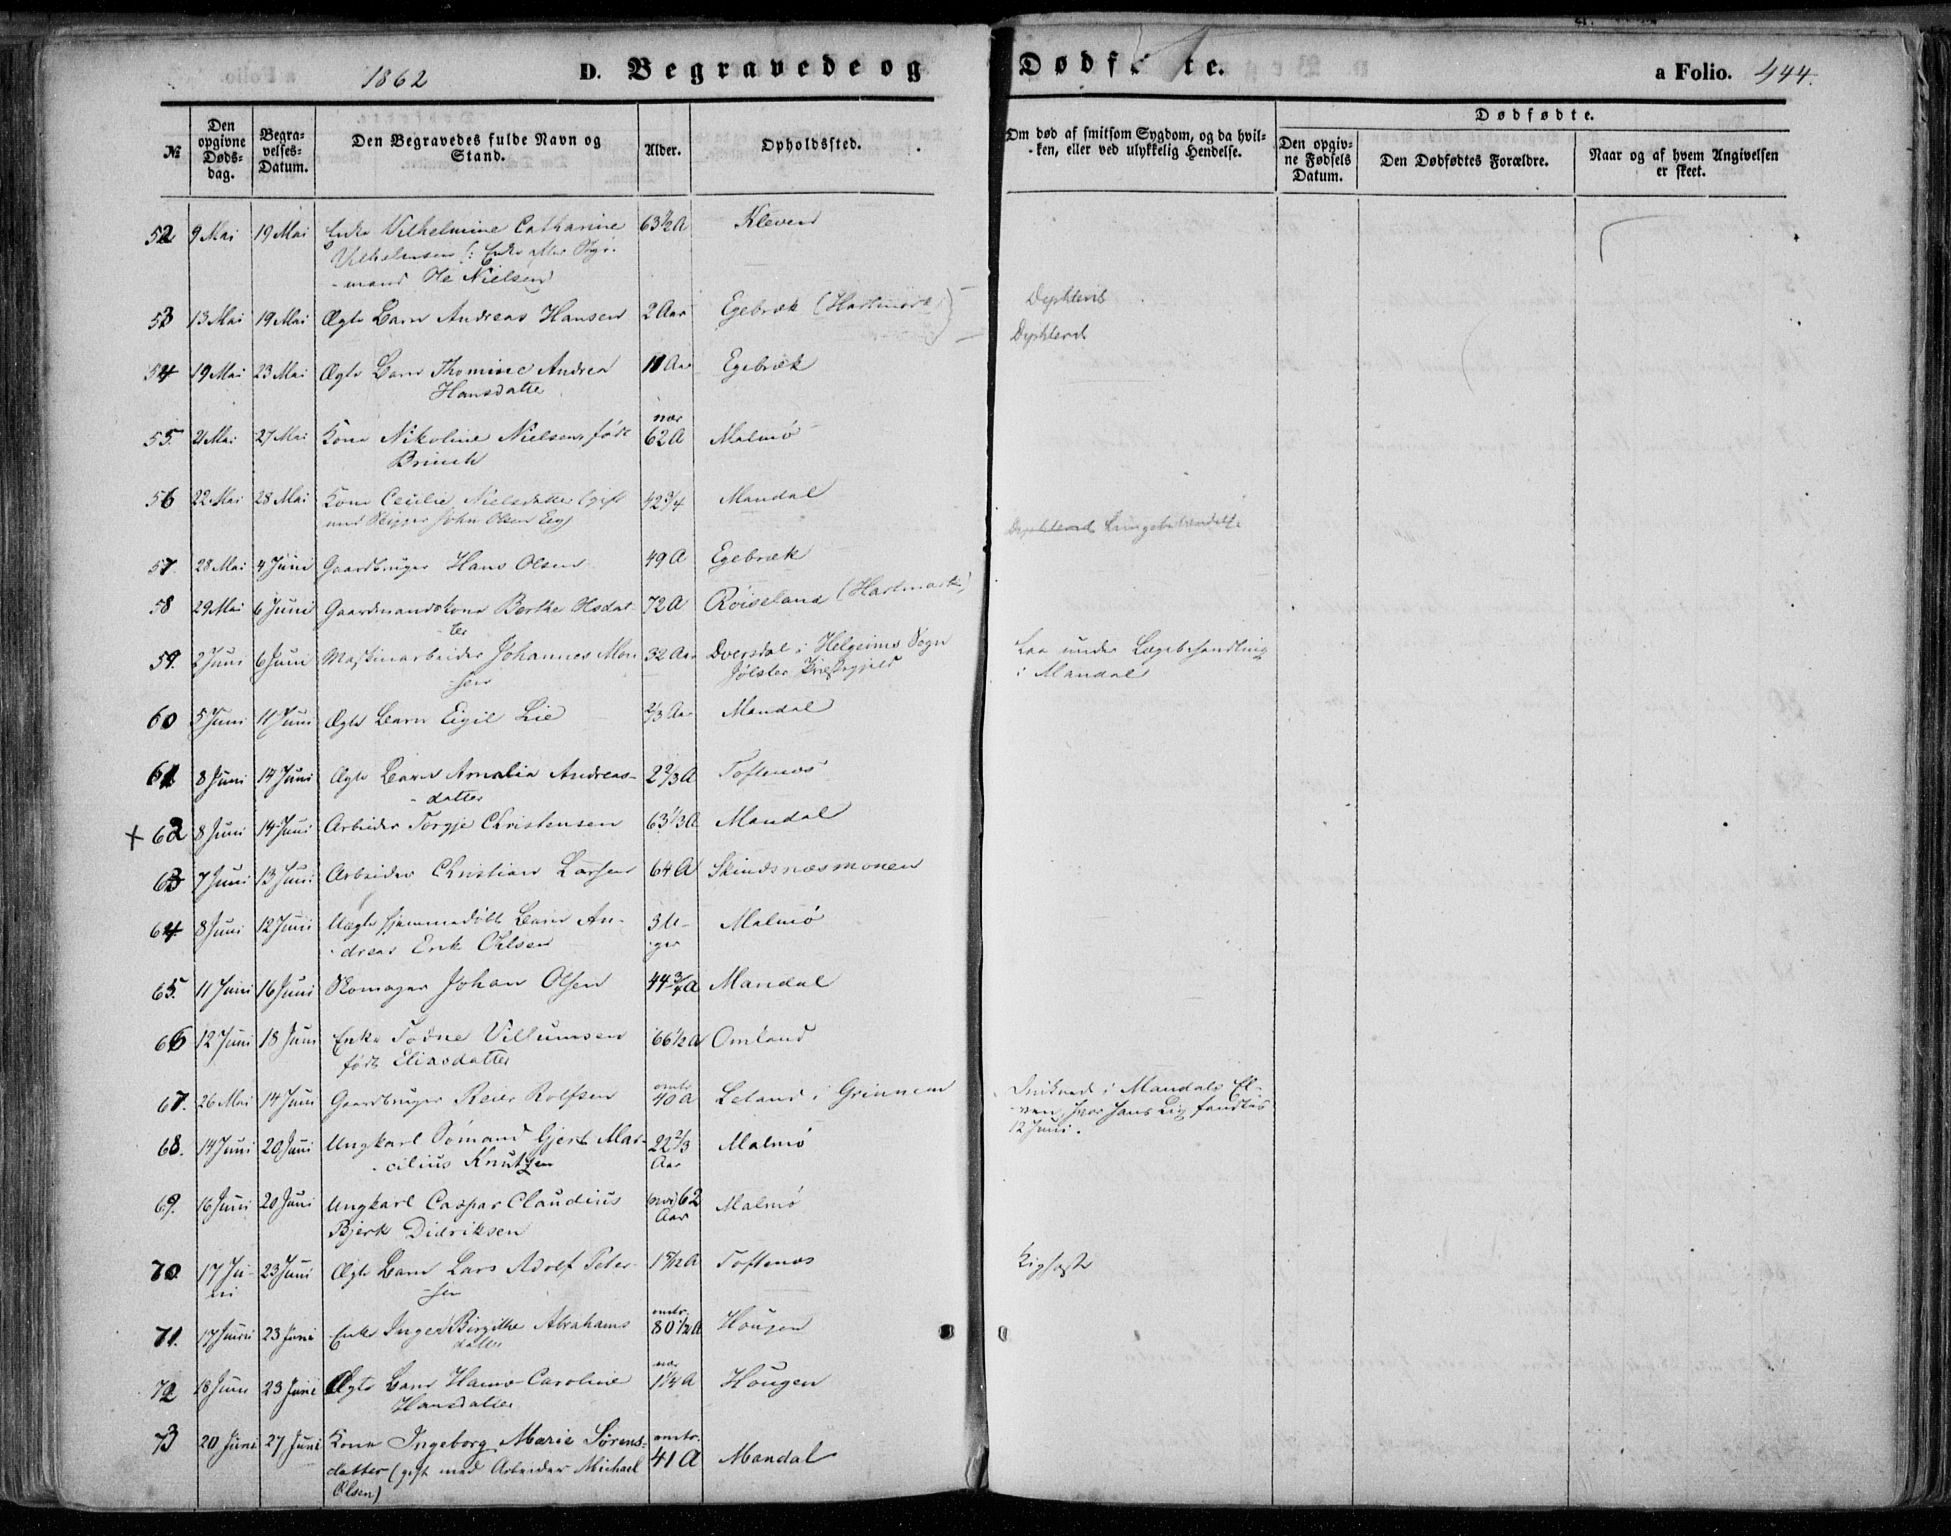 1862 D. Begravede og Dødfødte. a Folio. 444.
No Den opgivne Døds-dag. Begra-velses-Datum. Den Begravedes fulde Navn og Stand. Alder. Opholdssted. Om død af smitsom Sygdom, og da hvil-ken, eller ved ulykkelig Hendelse. Dødfødte. Den opgiv-ne Fødsels Datum. Den Dødfødtes Forældre. Naar og af hvem Angivelsen er skeet.
52 9 Mai 19 Mai Enke Vilhelmine Catharine 63½ A Kleven
Vilhelmsen /: Enke efter Styr-
-mand Ole Nielsen
53 13 Mai 19 Mai Ægte Barn Andreas Hansen 2 Aar Egebræk (Hartmark) Dyphterit
54 19 Mai 23 Mai Ægte Barn Thomine Andrea 11 Aar Egebræk Dyphterit
Hansdatter
55. 21 Mai 27 Mai Kone Nikoline Nielsen, født nær 62 A Malmø
Brinch
56 22 Mai 28 Mai Kone Cecilie Nielsdatter (gift 42¾ Mandal
med Skipper John Olsen Eeg)
57. 28 Mai 4 Juni Gaardbruger Hans Olsen 49 A Egebræk Dyphterit Lungebetændelse
58 29 Mai 6 Juni Gaardmandskone Berthe Olsdat- 72 A Röiseland (Hartmark)
ter
59. 2 Juni 6 Juni Maskinarbeider Johannes Mon 32 Aar Dversdal i Helgeims Sogn Laa under Lægebehandling
-sen Jølster Præstegjeld i Mandal
60 5 Juni 11 Juni Ægte Barn Eigil Lie ⅔ Aar Mandal
61 8 Juni 14 Juni Ægte Barn Amalia Andreas- 2⅔ A Toftenæs
-datter
+ 62 8 Juni 14 Juni Arbeider Torgje Christensen 63⅓ A Mandal
63 7 Juni 13 Juni Arbeider Christian Larsen 64 A Skindsnæsmonen
64. 8 Juni 12 Juni Uægte hjemmedøbt Barn An- 3 U- Malmø
-dreas Erik Olsen -ger
65. 11 Juni 16 Juni Skomager Johan Olsen 44¾ A Mandal
66 12 Juni 18 Juni Enke Todne Villumsen 66½ A Omland
født Eliasdatter
67. 26 Mai 14 Juni Gaardbruger Reier Rolfsen omtr 40 A Leland i Grinnem Druknede i Mandals El-
-ven, hvor hans Lig fandtes
12 Juni.
68. 14 Juni 20 Juni Ungkarl Sømand Gjert Mar- 22⅔ Aar Malmø
-cilius Knutsen
69. 16 Juni 20 Juni Ungkarl Caspar Claudius 62 Aar Malmø
Bjerk Didriksen
70. 17 Ju-ni 23 Juni Ægte Barn Lars Adolf Peter- Toftenæs Kighoste
-sen
71. 17 Juni 23 Juni Enke Inger Birgithe Abrahams omtr. 80½ A Hougen
datter
72 18 Juni 23 Juni Ægte Barn Hanne Caroline nær 1¼ A Hougen
Hansdatter
73 20 Juni 27 Juni Kone Ingeborg Marie Sørens- omtr. 41 A Mandal
datter (gift med Arbeider Michael
Olsen)